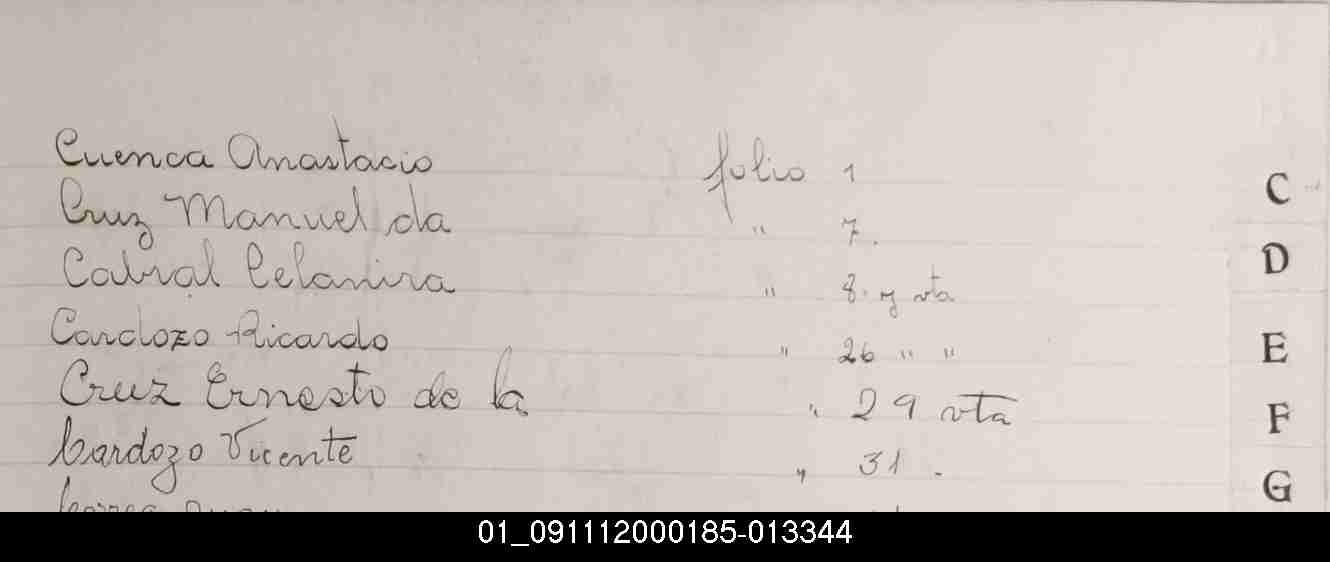 Cuenca Anastacio folio 1
Cruz Manuel da " 7.
Cabral Celanira " 8. y vta
Cardozo Ricardo " 26 " "
Cruz Ernesto de la " 29 vta
Cardozo Vicente " 31 .
C
D
E
F
G
01_091112000185-013344